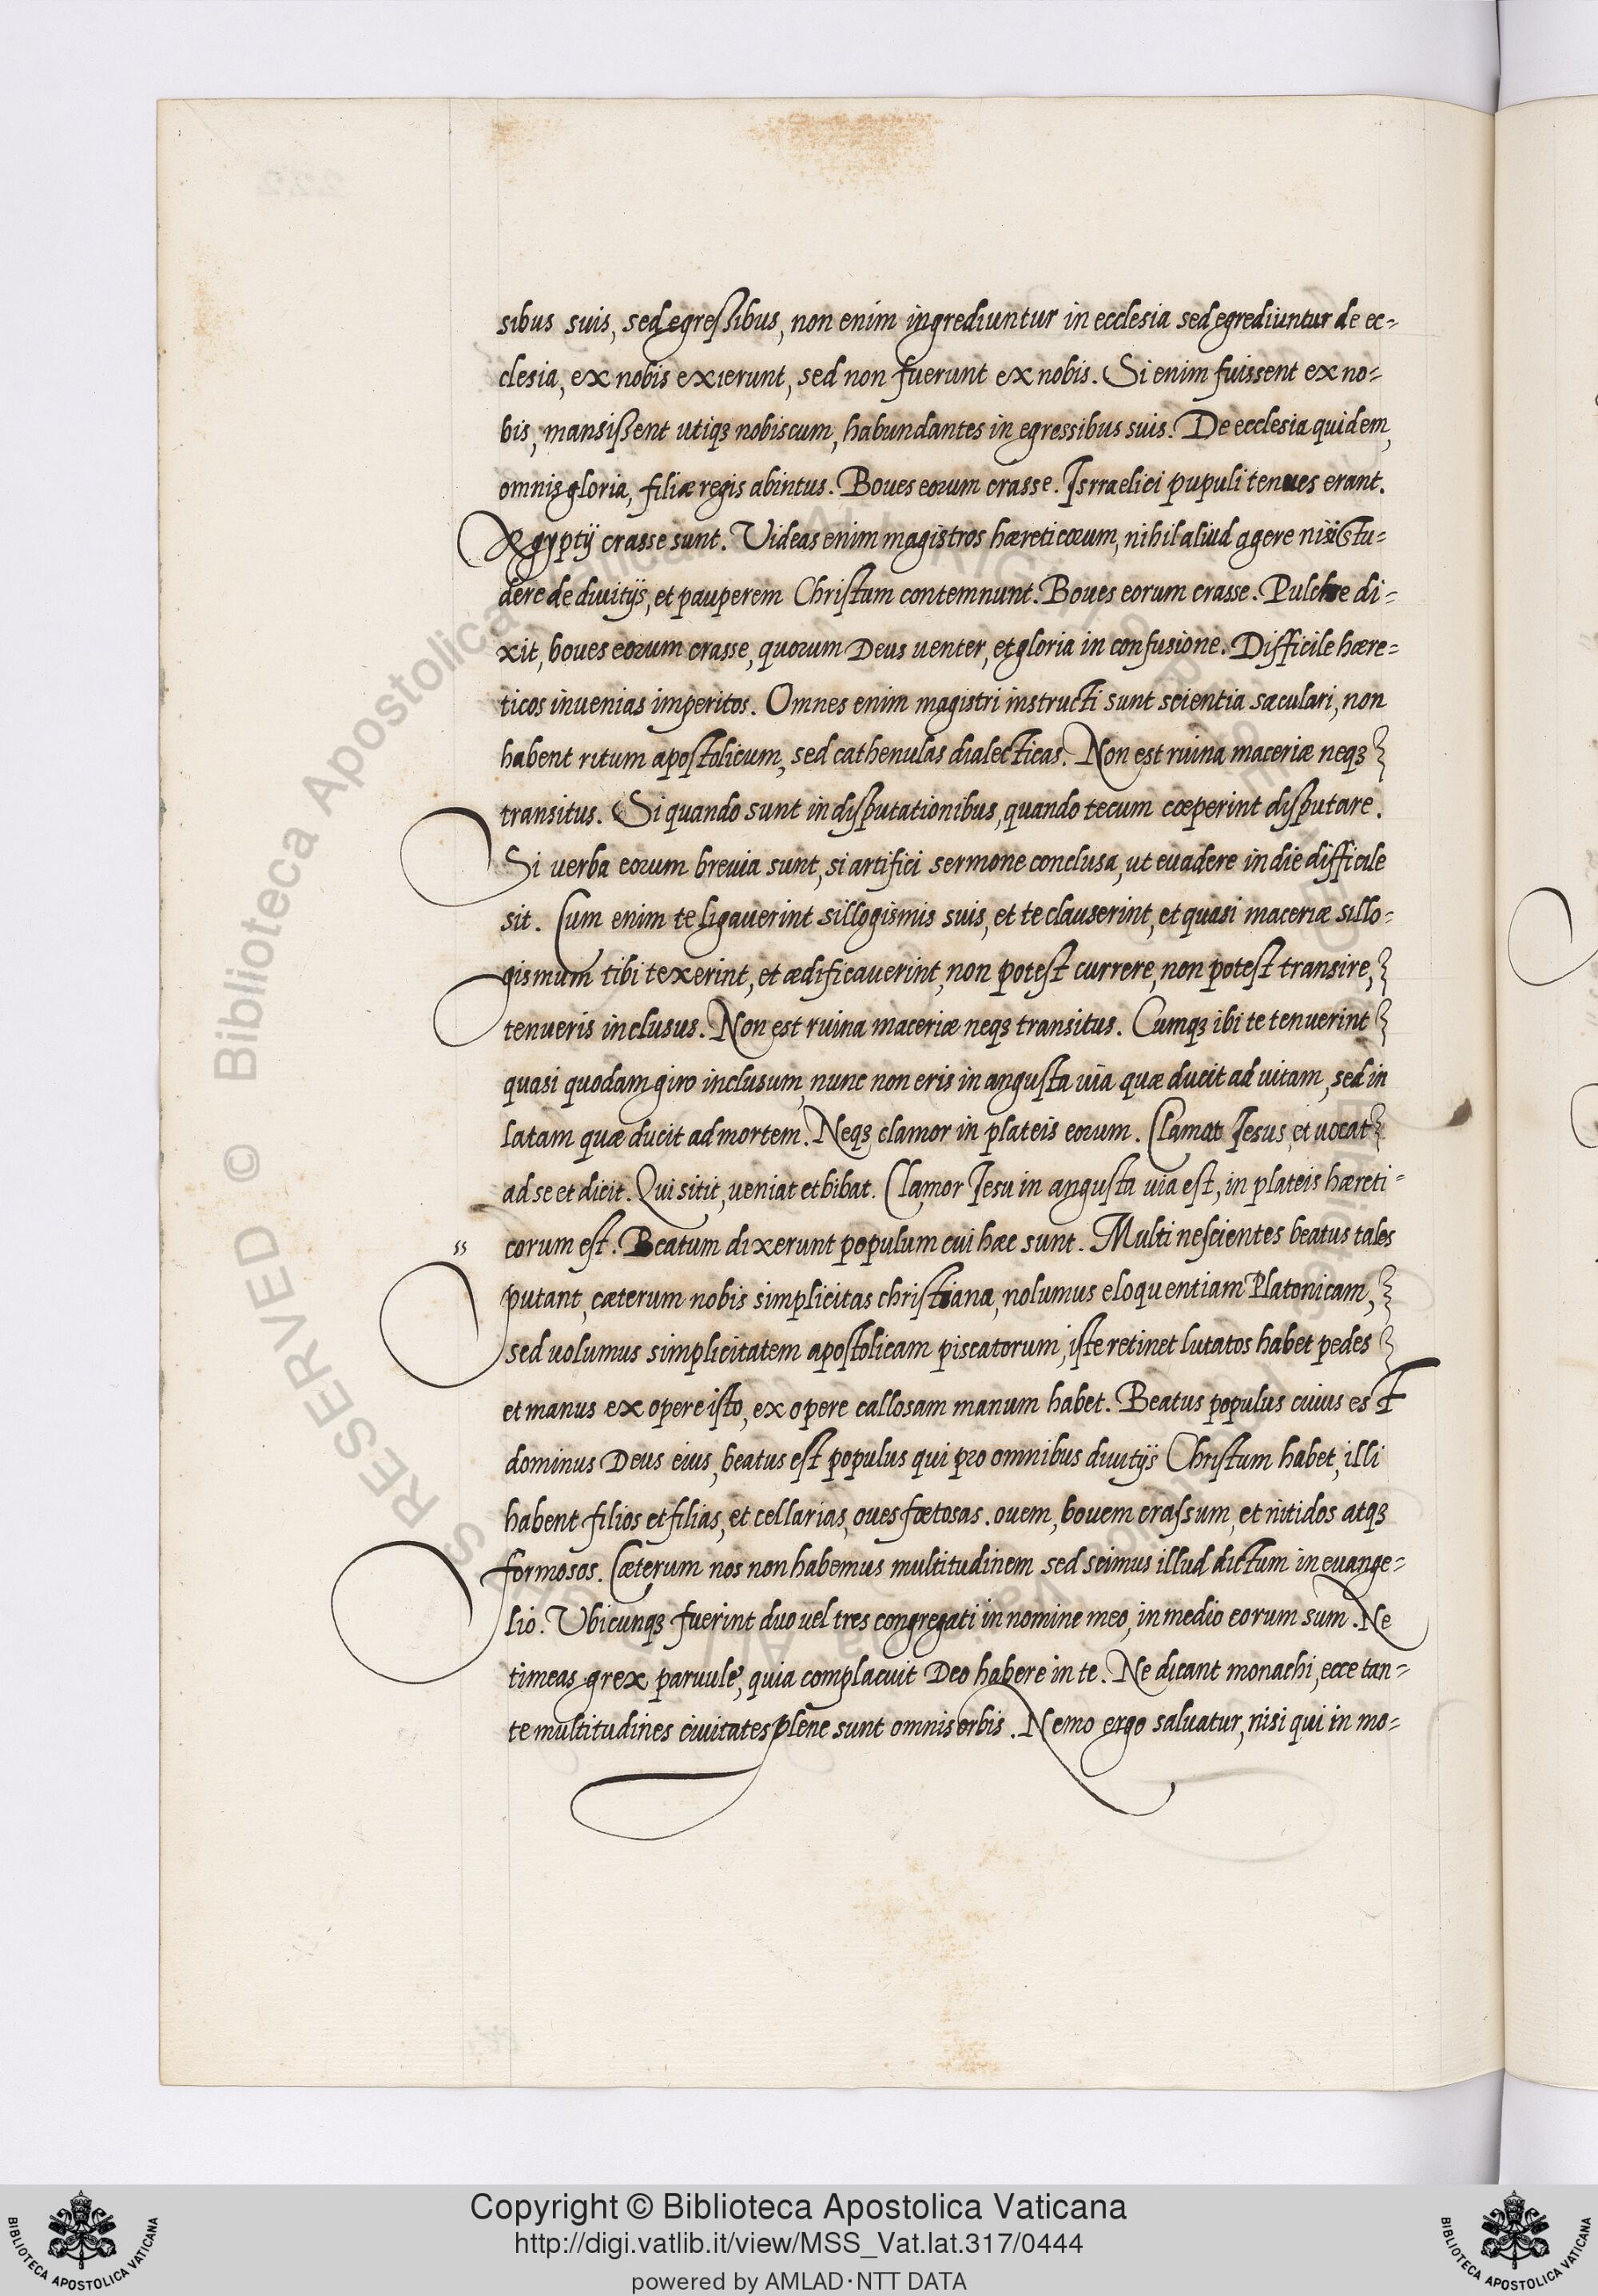 sibus suis, sed egressibus, non enim ingrediuntur in ecclesia sed egrediuntur de ec-
clesia, ex nobis exierunt, sed non fuerunt ex nobis. Si enim fuissent ex no-
bis, mansissent utiqз nobiscum, habundantes in egressibus suis. De ecclesia quidem,
omnis gloria, filiæ regis abintus. Boves eorum crasse. Isrraelici pupuli tenues erant.
Ægyptij crasse sunt. Videas enim magistros hæreticorum, nihil aliud agere nisi stu-
dere de divitijs, et pauperem Christum contemnunt. Boves eorum crasse. Pulchre di-
xit, boves eorum crasse, quorum Deus venter, et gloria in confusione. Difficile hære-
ticos invenias imperitos. Omnes enim magistri instructi sunt scientia sæculari, non
habent ritum apostolicum, sed cathenulas dialecticas. Non est ruina maceriæ neqз
transitus. Si quando sunt in disputationibus, quando tecum cœperint disputare.
Si verba eorum brevia sunt, si artifici sermone conclusa, ut evadere in die difficile
sit. Cum enim te ligaverint sillogismis suis, et te clauserint, et quasi maceriæ sillo-
gismum tibi texerint, et ædificaverint, non potest currere, non potest transire,
tenueris inclusus. Non est ruina maceriæ neqз transitus. Cumqз ibi te tenuerint
quasi quodam giro inclusum, nunc non eris in angusta via quæ ducit ad vitam, sed in
latam quæ ducit ad mortem. Neqз clamor in plateis eorum. Clamat Jesus, et vocat
ad se et dicit. Qui sitit, veniat et bibat. Clamor Jesu in angusta via est, in plateis hæreti-
" corum est. Beatum dixerunt populum cui hæc sunt. Multi nescientes beatus tales
putant, cæterum nobis simplicitas christiana, nolumus eloquentiam Platonicam,
sed volumus simplicitatem apostolicam piscatorum, iste retinet lutatos habet pedes
et manus ex opere isto, ex opere callosam manum habet. Beatus populus cuius est
dominus Deus eius, beatus est populus qui pro omnibus divitijs Christum habet, illi
habent filios et filias, et cellarias, oves fœtosas. ovem, bovem crassum, et nitidos atqз
formosos. Cæterum nos non habemus multitudinem sed scimus illud dictum in evange-
lio. Ubicunqз fuerint duo vel tres congregati in nomine meo, in medio eorum sum. Ne
timeas grex parvule, quia complacuit Deo habere in te. Ne dicant monachi, ecce tan-
te multitudines civitates plene sunt omnis orbis. Nemo ergo salvatur, nisi qui in mo-
© Biblioteca Apostolica Vaticana
RESERVED
Copyright © Biblioteca Apostolica Vaticana
http://digi.vatlib.it/view/MSS_Vat.lat.317/0444
powered by AMLAD·NTT DATA
BIBLIOTECA APOSTOLICA VATICANA
BIBLIOTECA APOSTOLICA VATICANA